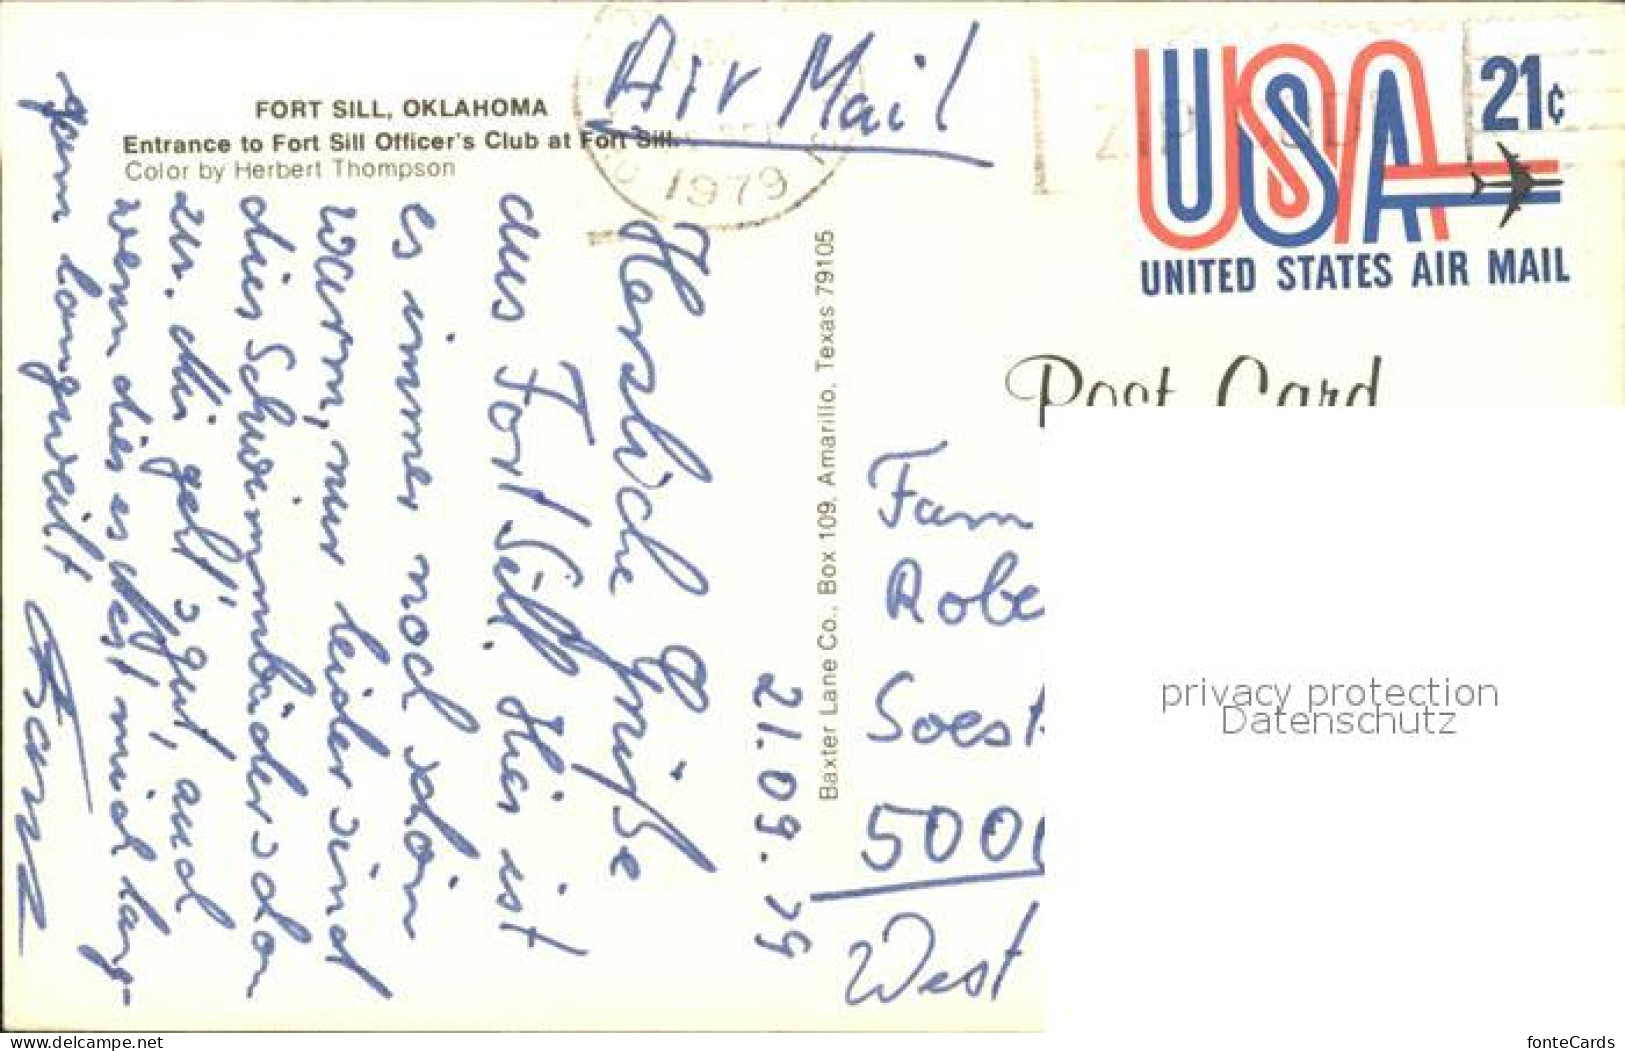 FORT SILL, OKLAHOMA
Entrance to Fort Sill Officer's Club at Fort Sill.
Color by Herbert Thompson
Air Mail
1979
USA 21c
UNITED STATES AIR MAIL
Post Card
Baxter Lane Co., Box 109, Amarillo, Texas 79105
21.09.79
Herzliche Grüße
aus Fort Sill. Hier ist
es immer noch schön
warm, nur leider sind
die Schwimmbäder schon
zu. Mir geht's gut, auch
wenn dieses Nest mich lang-
sam langweilt
Fam
Robe
Soest
500
West
privacy protection
Datenschutz
www.delcampe.net
fonteCards